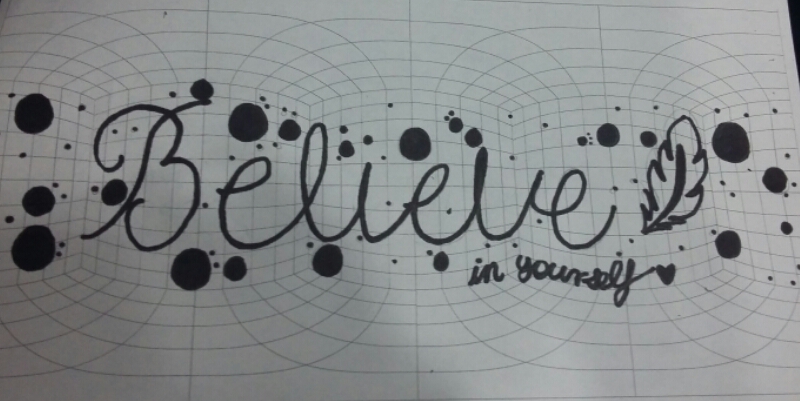 Believe
in yourself